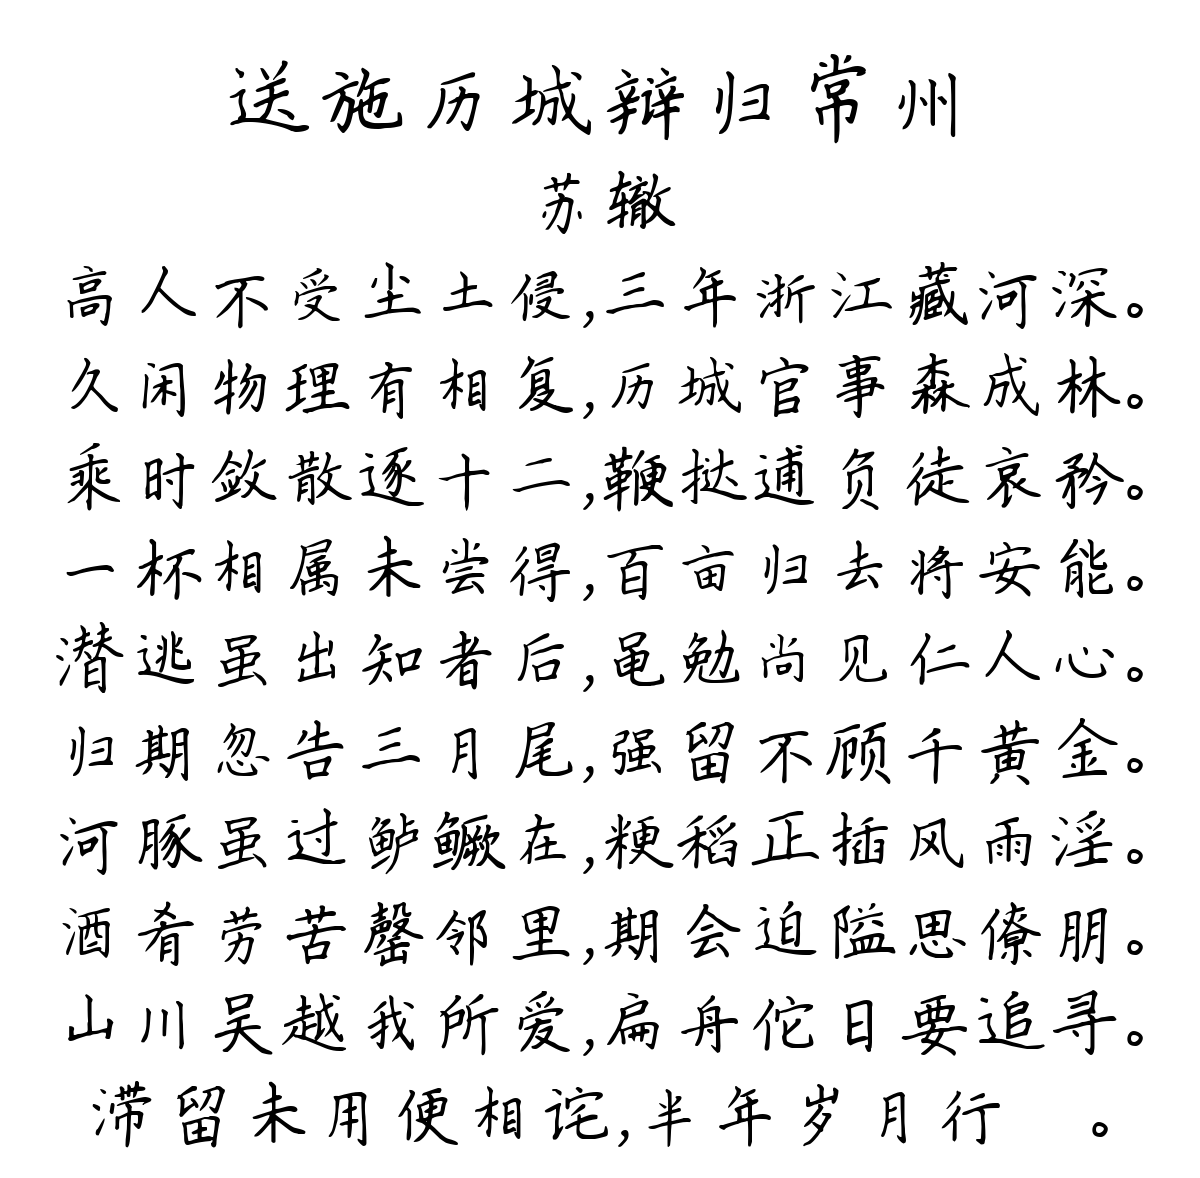 送施历城辩归常州
苏辙
高人不受尘土侵,三年浙江藏河深。
久闲物理有相复,历城官事森成林。
乘时敛散逐十二,鞭挞逋负徒哀矜。
一杯相属未尝得,百亩归去将安能。
潜逃虽出知者后,黾勉尚见仁人心。
归期忽告三月尾,强留不顾千黄金。
河豚虽过鲈鳜在,粳稻正插风雨淫。
酒肴劳苦罄邻里,期会迫隘思僚朋。
山川吴越我所爱,扁舟佗日要追寻。
滞留未用便相诧,半年岁月行 。